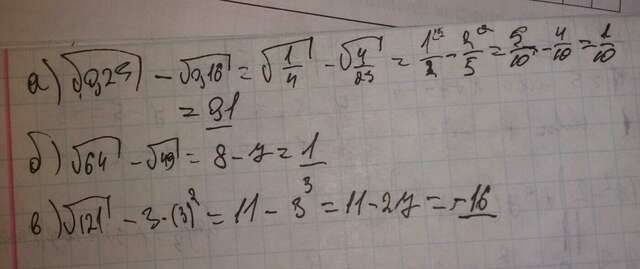 а) √0,25 - √0,16 = √1/4 - √4/25 = 1/2 - 2/5 = 5/10 - 4/10 = 1/10
= 0,1
б) √64 - √49 = 8 - 7 = 1
в) √121 - 3·(3)² = 11 - 3³ = 11 - 27 = -16